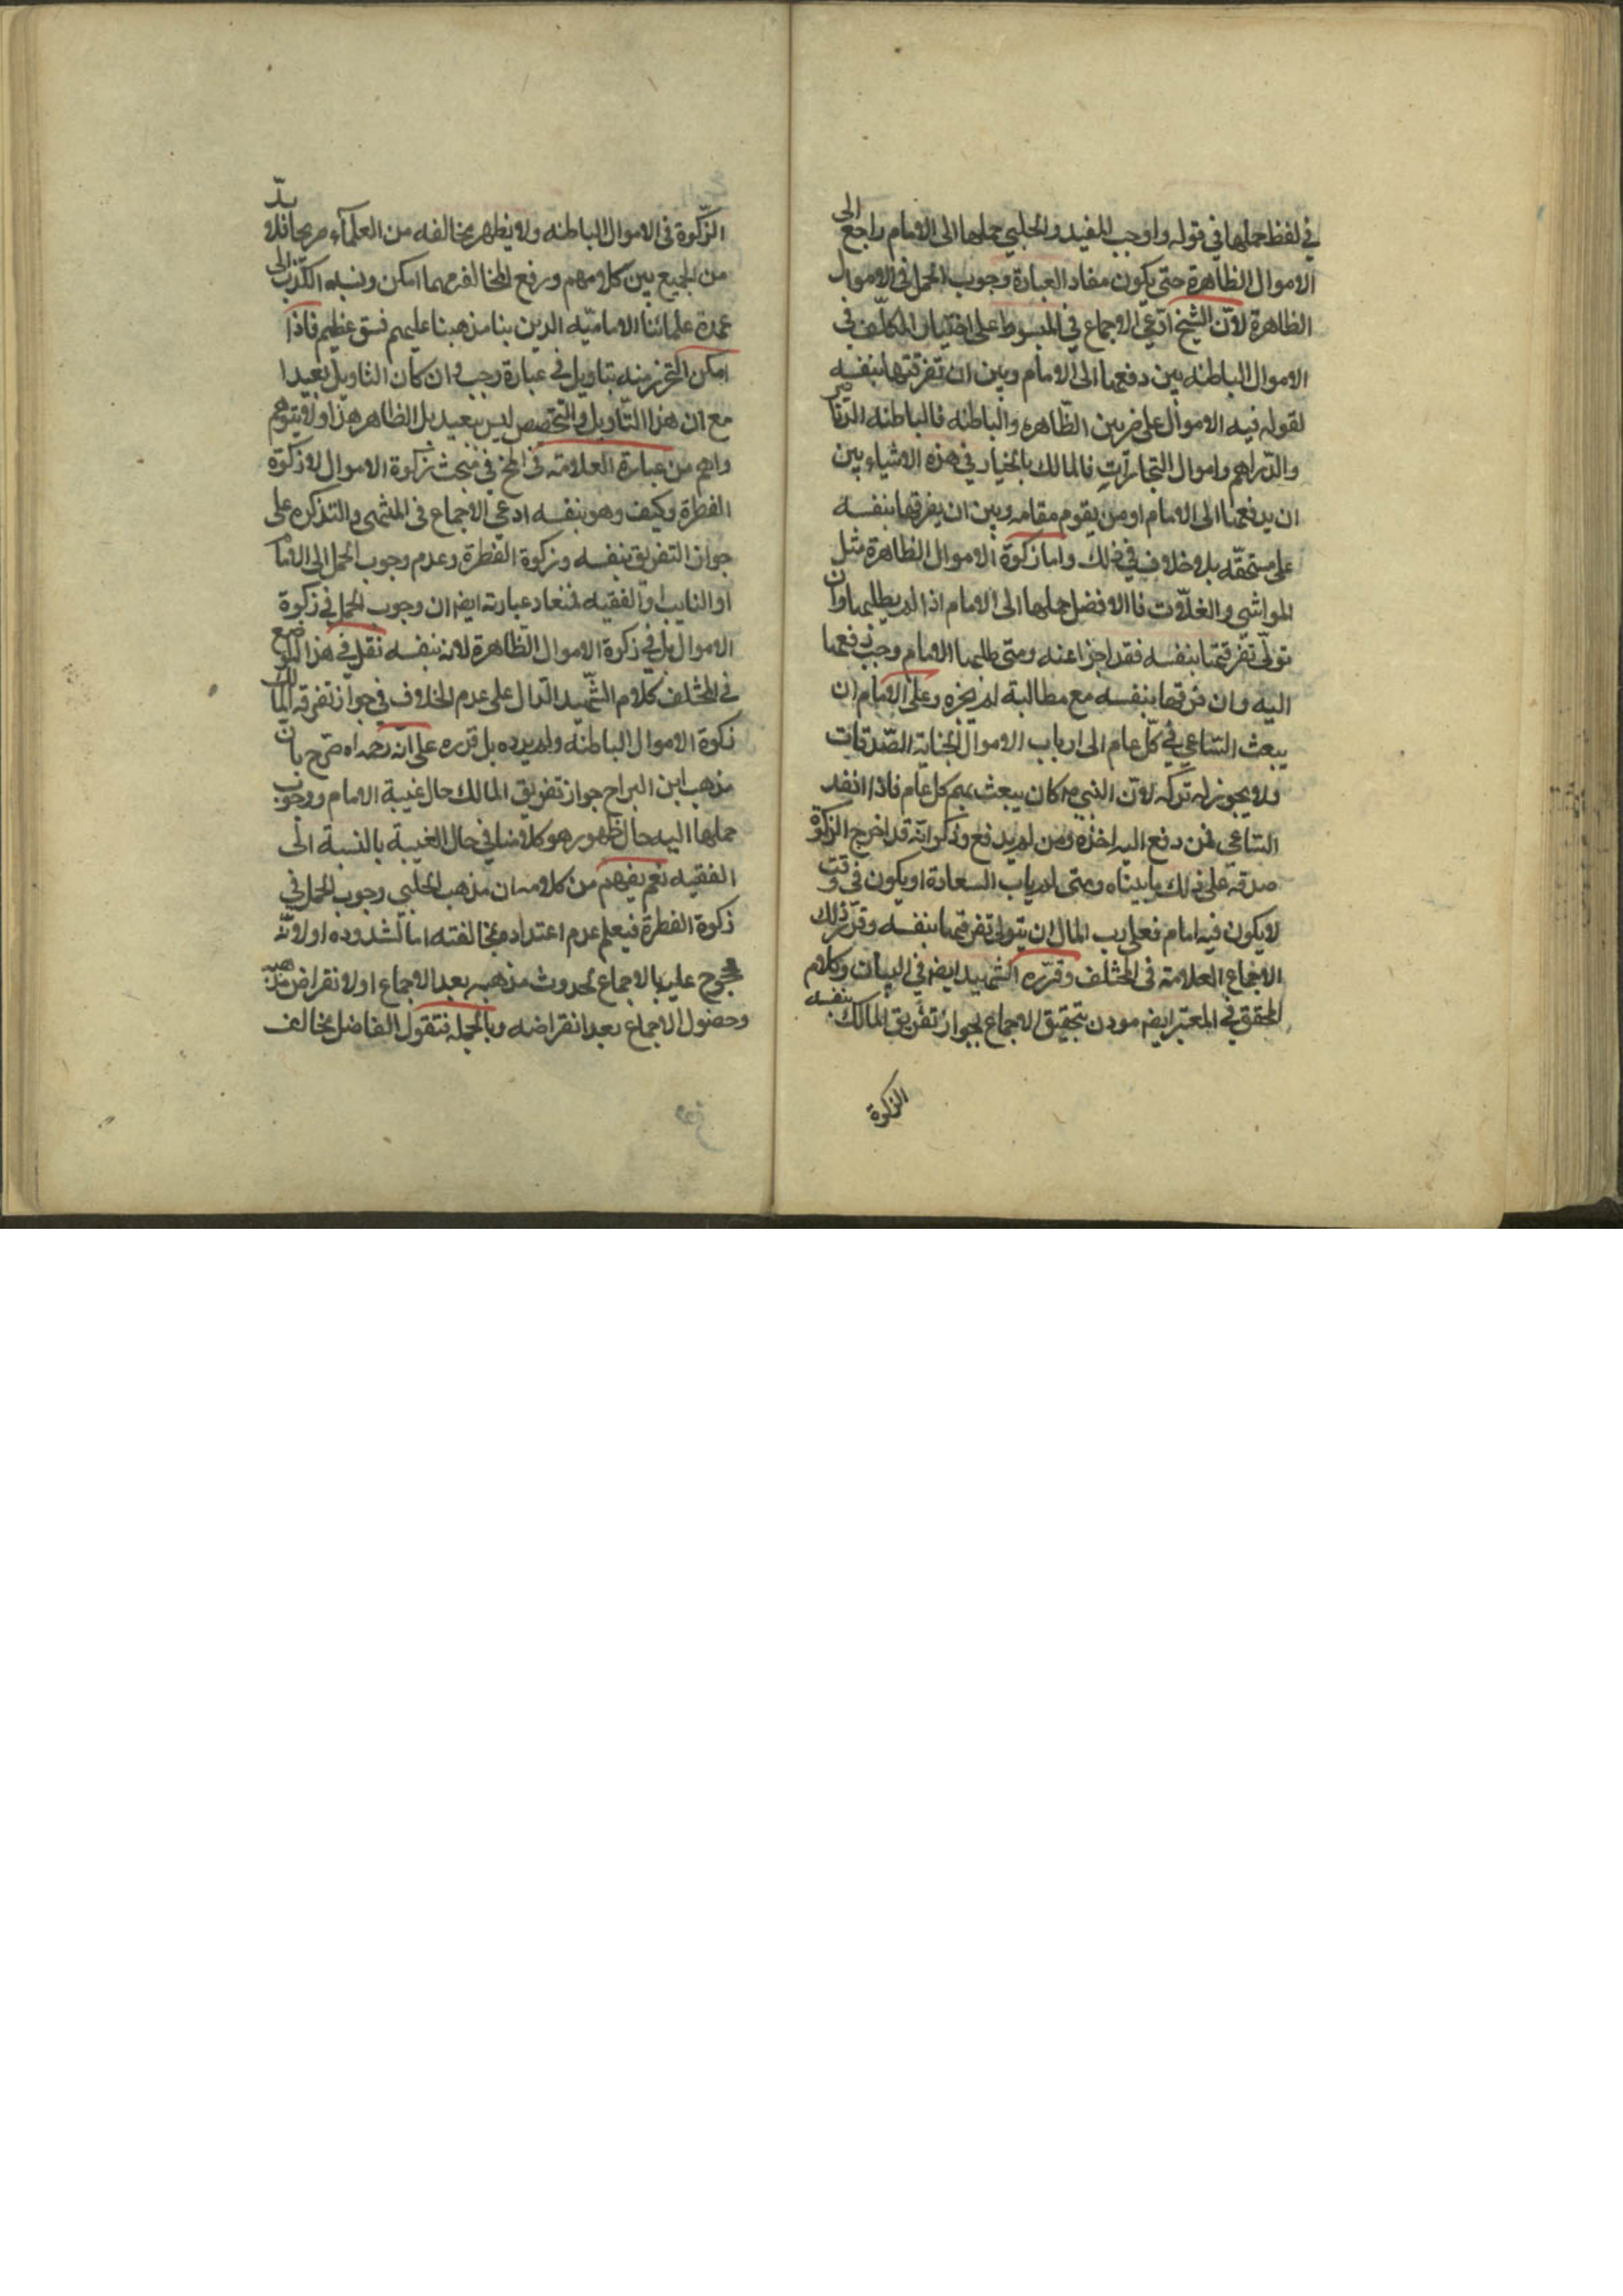 في لفظ حملها في قوله واوجب المفيد والحلبي حملها الى الامام راجع الى
الاموال الظاهرة حتى يكون مفاد العبارة وجوب الحمل في الاموال
الظاهرة لانّ الشيخ ادّعى الاجماع في المبسوط على اختيار المكلّف في
الاموال الباطنه بين دفعها الى الامام وبين ان تفرقتها بنفسه
لقوله فيه الاموال على ضربين الظّاهره والباطنه فالباطنه الدّنانير
والدّراهم واموال التجاراتِ فالمالك بالخيار في هذه الاشياء بين
ان يدفعها الى الامام او من يقوم مقامه وبين ان يفرقها بنفسه
على مستحقّه بلا خلاف في ذلك واما زكوة الاموال الظاهرة مثل
المواشي والغلّات فاالافضل حملها الى الامام اذا لم يطلبها وان
تولّى تفرقتها بنفسه فقد اجزا عنه ومتى طلبها الامام وجب دفعها
اليه وان فرقها بنفسه مع مطالبة لم يجزه وعلى الامام ان
يبعث السّاعي في كلّ عام الى ارباب الاموال لجناية الصّدقات
ولا يجوز له تركه لانّ النبي ص كان يبعث بهم كل عام فاذا انفد
السّاعى فمن دفع اليه اخذه ومن لم يدفع وذكر انّه قد اخرج الزكوة
صدقه على ذلك بما بيناه ومتى لم ياب السعادة او يكون في وقت
لا يكون فيه امام فعلى رب المال ان يتولى تفرقتها بنفسه وقرّر ذلك
الاجماع العلامة فى المختلف وقرّره الشهيد ايضا في البيان وكلام
المحقق في المعتبر ايضا موذن بتحقيق الاجماع لجواز تفريق المالك بنفسه
الزكوة
الزّكوة فى الاموال الباطنه ولا يظهر مخالفه من العلمآء صريحا فلا بدّ
من الجميع بين كلامهم ورفع المخالفه مهما امكن ونسبه الكذب الى
عمدة علمائنا الاماميّه الذين بنا مذهبنا عليهم فسق عظيم فاذا
امكن التحرّز منه بتاويل في عبارة وجب وان كان التاويل بعيدا
مع ان هذا التّاويل والتخصيص ليس ببعيد بل الظاهر هذا ولا يتوهم
واهم من عبارة العلامة فى المخ في مبحث زكوة الاموال لا زكوة
الفطرة وكيف وهو بنفسه ادعى الاجماع فى المنتهى والتذكره على
جواز التفريق بنفسه وزكوة الفطرة وعدم وجوب الحمل الى الامام
او النايب او الفقيه فمفاد عبارته ايضا ان وجوب الحمل في زكوة
الاموال بل في زكوة الاموال الظّاهرة لانه بنفسه نقل في هذا الموضع
في المختلف كلام الشّهيد الدّال على عدم الخلاف في جواز تفرقه المالك
زكوة الاموال الباطنه ولم يرده بل قرره على انّه رحمه اه صّرح بان
مذهب ابن البراج جواز تفريق المالك حال غيبة الامام ووجوب
حملها اليه حال ظهوره وكلامنا في حال الغيبة بالنسبة الى
الفقيه نعم يفهم من كلامه ان مذهب الحلبي وجوب الحمل في
زكوة الفطرة فيعلم عدم اعتداده بمخالفته اما لشذوذه او لانّه
محجوج عليه بالاجماع لحدوث مذهبه بعد الاجماع او لانقراض مذهبه
وحصول الاجماع بعد انقراضه وبالجمله فنقول الفاضل مخالف